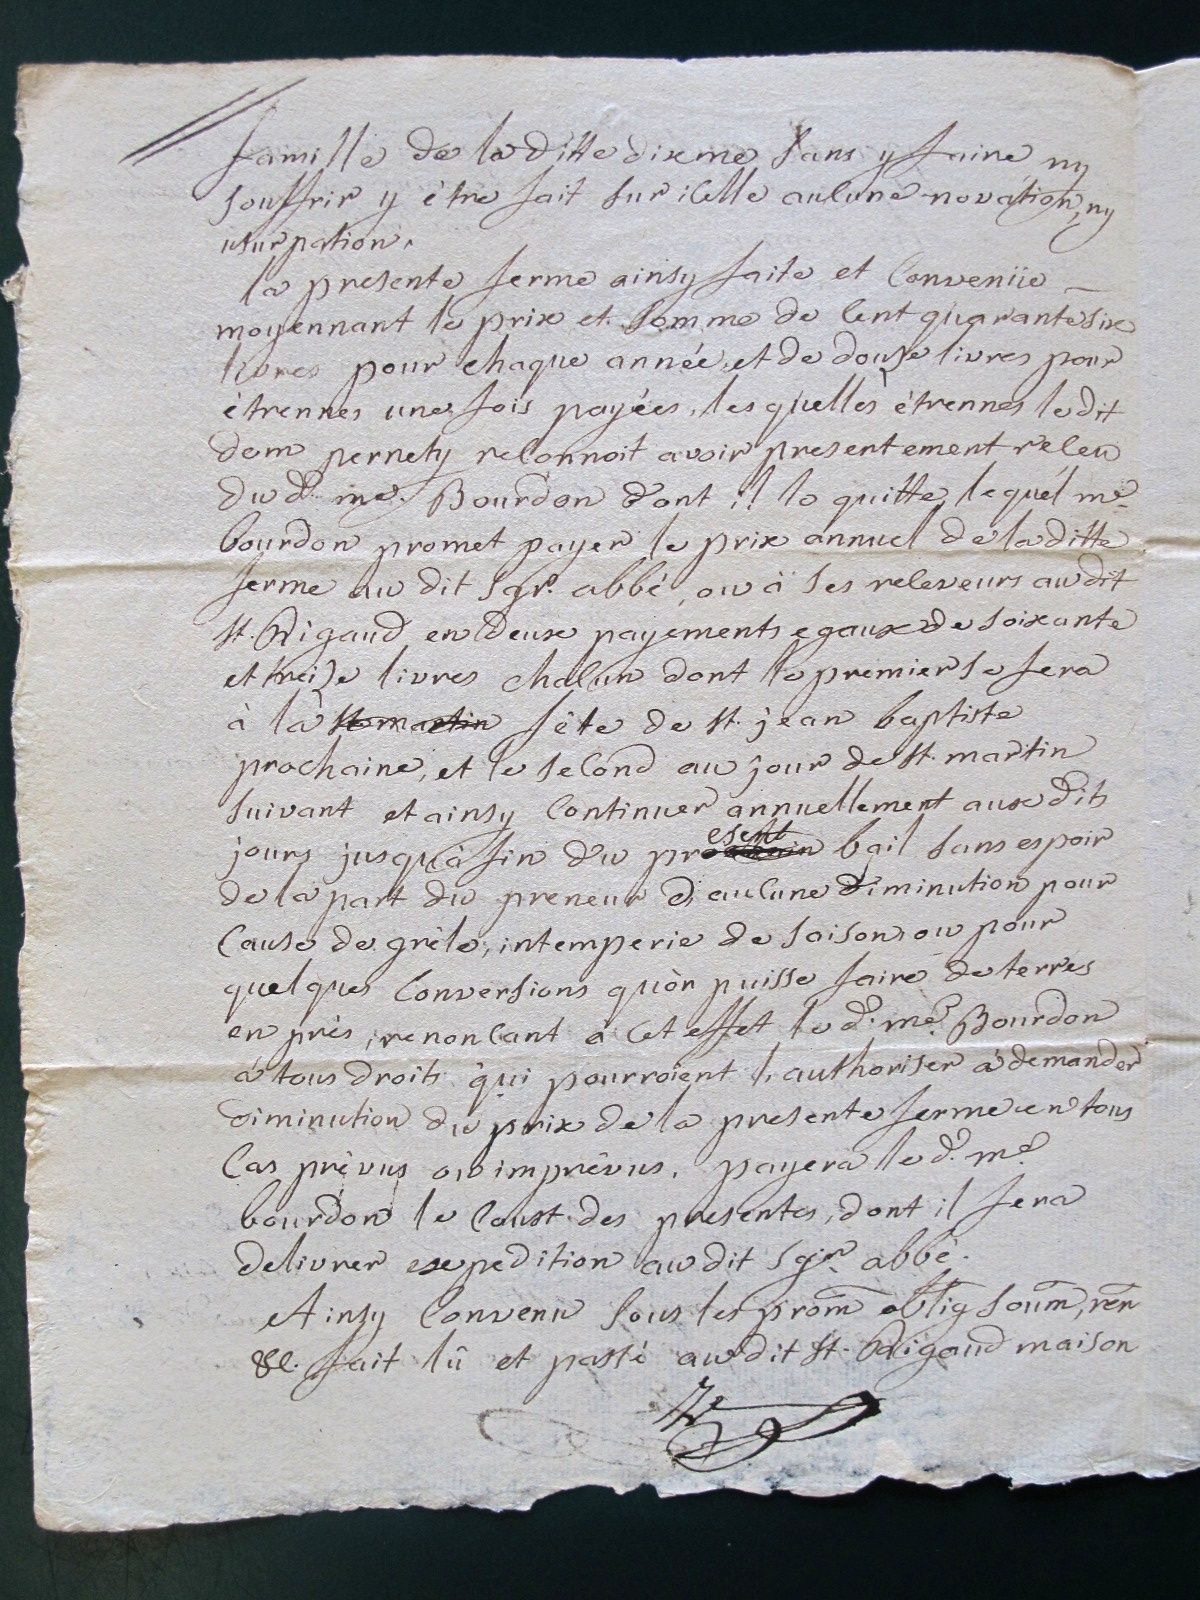 famille de la ditte dixme sans y faire ny
souffrir y être fait sur icelle aucune novation, ny
usurpation.
la presente ferme ainsy faite et convenüe
moyennant le prix et somme de cent quarante six
livres pour chaque année, et de douze livres pour
étrennes une fois payées, les quelles étrennes le dit
dom pernety reconnoit avoir presentement receu
du d. me. Bourdon dont il le quitte, lequel me.
bourdon promet payer le prix annuel de la ditte
ferme au dit sgr. abbé, ou à ses receveurs au dit
st. Rigaud en deux payements egaux de soixante
et treize livres chacun dont le premier se fera
à la st martin fête de st. jean baptiste
prochaine, et le second au jour de st. martin
suivant et ainsy continuer annuellement aux dits
jours jusqu'à fin du present bail sans espoir
de la part du preneur d'aucune diminution pour
cause de grêle, intemperie de saison ou pour
quelques conversions qu'on puisse faire de terres
en près, renoncant à cet effet le d. me. Bourdon
à tous droits qui pourroient l'authoriser à demander
diminution du prix de la presente ferme en tous
cas prévus ou imprévus. payera le d. me.
bourdon le coust des presentes, dont il fera
delivrer expedition au dit sgr. abbé.
Ainsy convenu sous les prom oblig soum, ren
&c. fait lû et passé au dit st. Rigaud maison